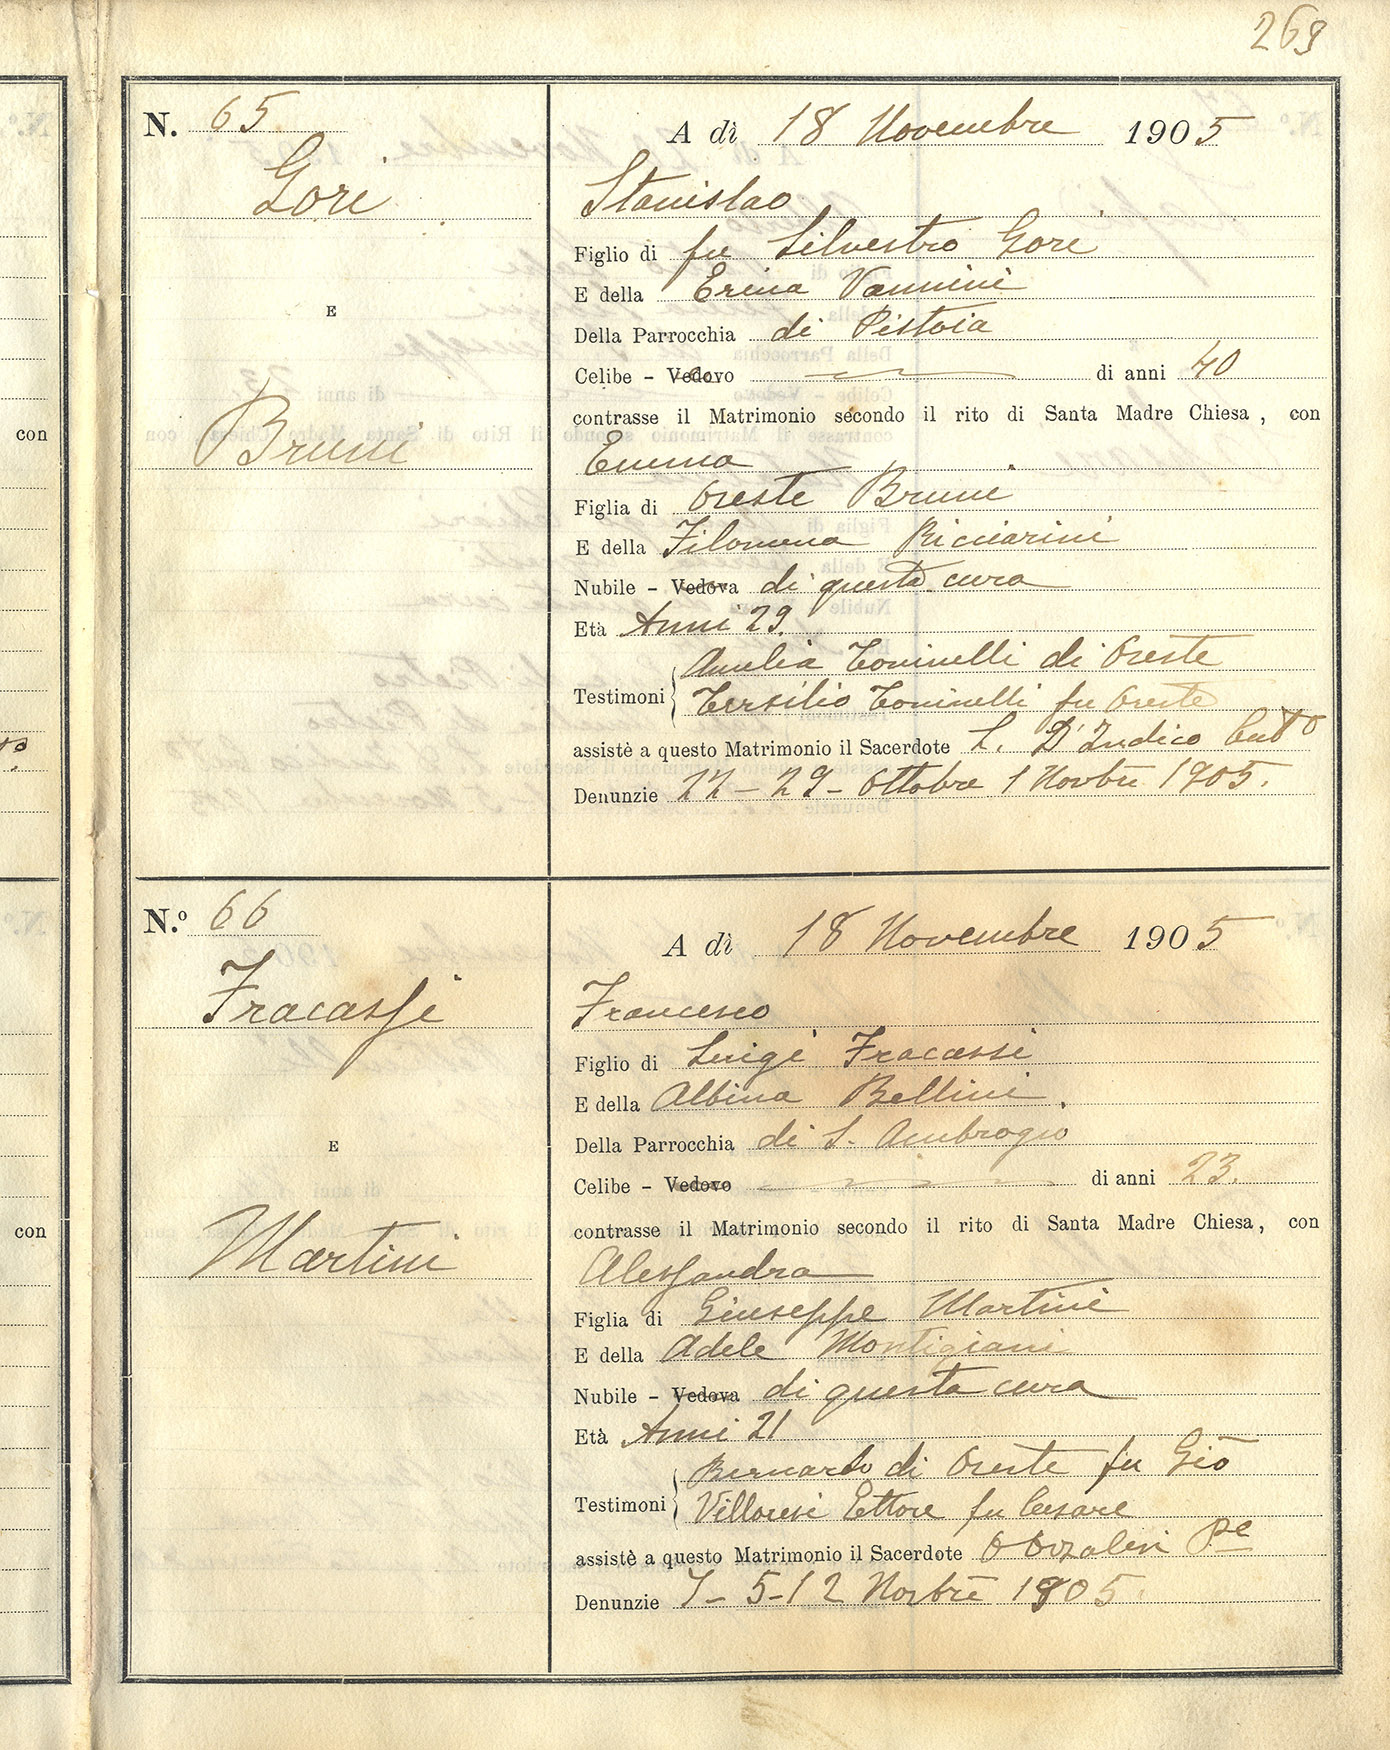 269
N. 65
Gori
E
Bruni
A dì 18 Novembre 1905
Stanislao
Figlio di fu Silvestro Gori
E della Erina Vannini
Della Parrocchia di Pistoia
Celibe - Vedovo di anni 40
contrasse il Matrimonio secondo il rito di Santa Madre Chiesa, con
Emma
Figlia di Oreste Bruni
E della Filomena Ricciarini
Nubile - Vedova di questa cura
Età Anni 29.
Amelia Toninelli di Oreste
Testimoni
Tersilio Toninelli fu Oreste
assistè a questo Matrimonio il Sacerdote L. D'Indico
Denunzie 22 - 29 - Ottobre 1 Novbre 1905.
N.º 66
Fracassi
E
Martini
A dì 18 Novembre 1905
Francesco
Figlio di Luigi Fracassi
E della Albina Bellini.
Della Parrocchia di S. Ambrogio
Celibe - Vedovo di anni 23.
contrasse il Matrimonio secondo il rito di Santa Madre Chiesa, con
Alessandra
Figlia di Giuseppe Martini
E della Adele Montigiani
Nubile - Vedova di questa cura
Età Anni 21
di Oreste fu Gio
Testimoni
Villoresi Ettore fu Cesare
assistè a questo Matrimonio il Sacerdote
Denunzie 1 - 5 - 12 Novbre 1905
con
con